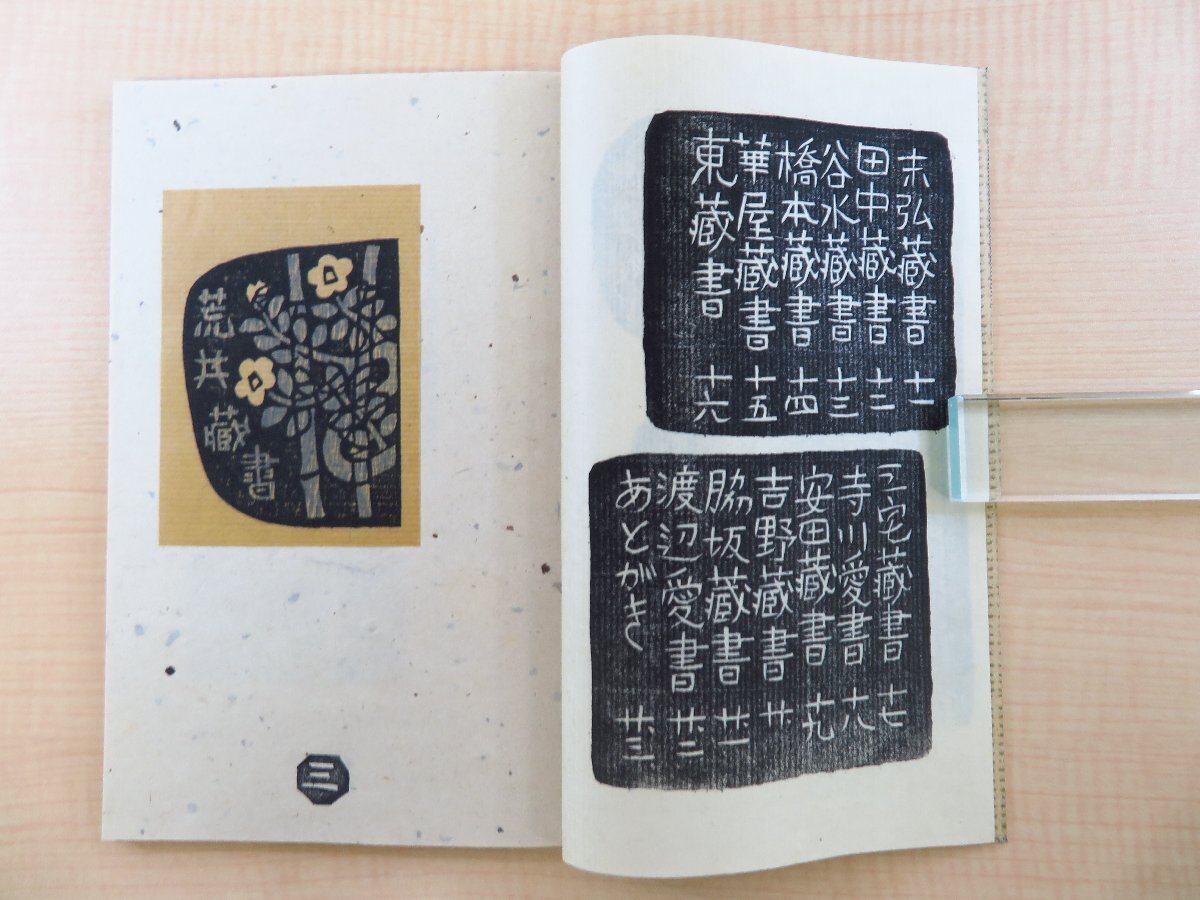 末弘藏書 十一
田中藏書 十二
谷水藏書 十三
橋本藏書 十四
華屋藏書 十五
東藏書 十六
三宅藏書 十七
寺川愛書 十八
安田藏書 十九
吉野藏書 廿
脇坂藏書 廿一
渡辺愛書 廿二
あとがき 廿三
荒井藏書
三